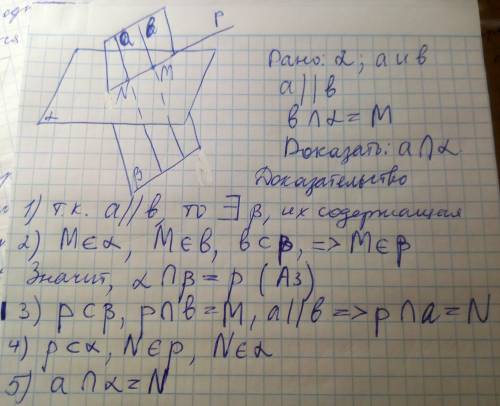 a b P
M
N
α
β
Дано: α; a и b
a || b
b ∩ α = M
Доказать: a ∩ α
Доказательство
1) т.к. a || b, то ∃ β, их содержащая
2) M ∈ α, M ∈ b, b ⊂ β, => M ∈ β
Значит, α ∩ β = p (A3)
3) p ⊂ β, p ∩ b = M, a || b => p ∩ a = N
4) p ⊂ α, N ∈ p, N ∈ α
5) a ∩ α = N